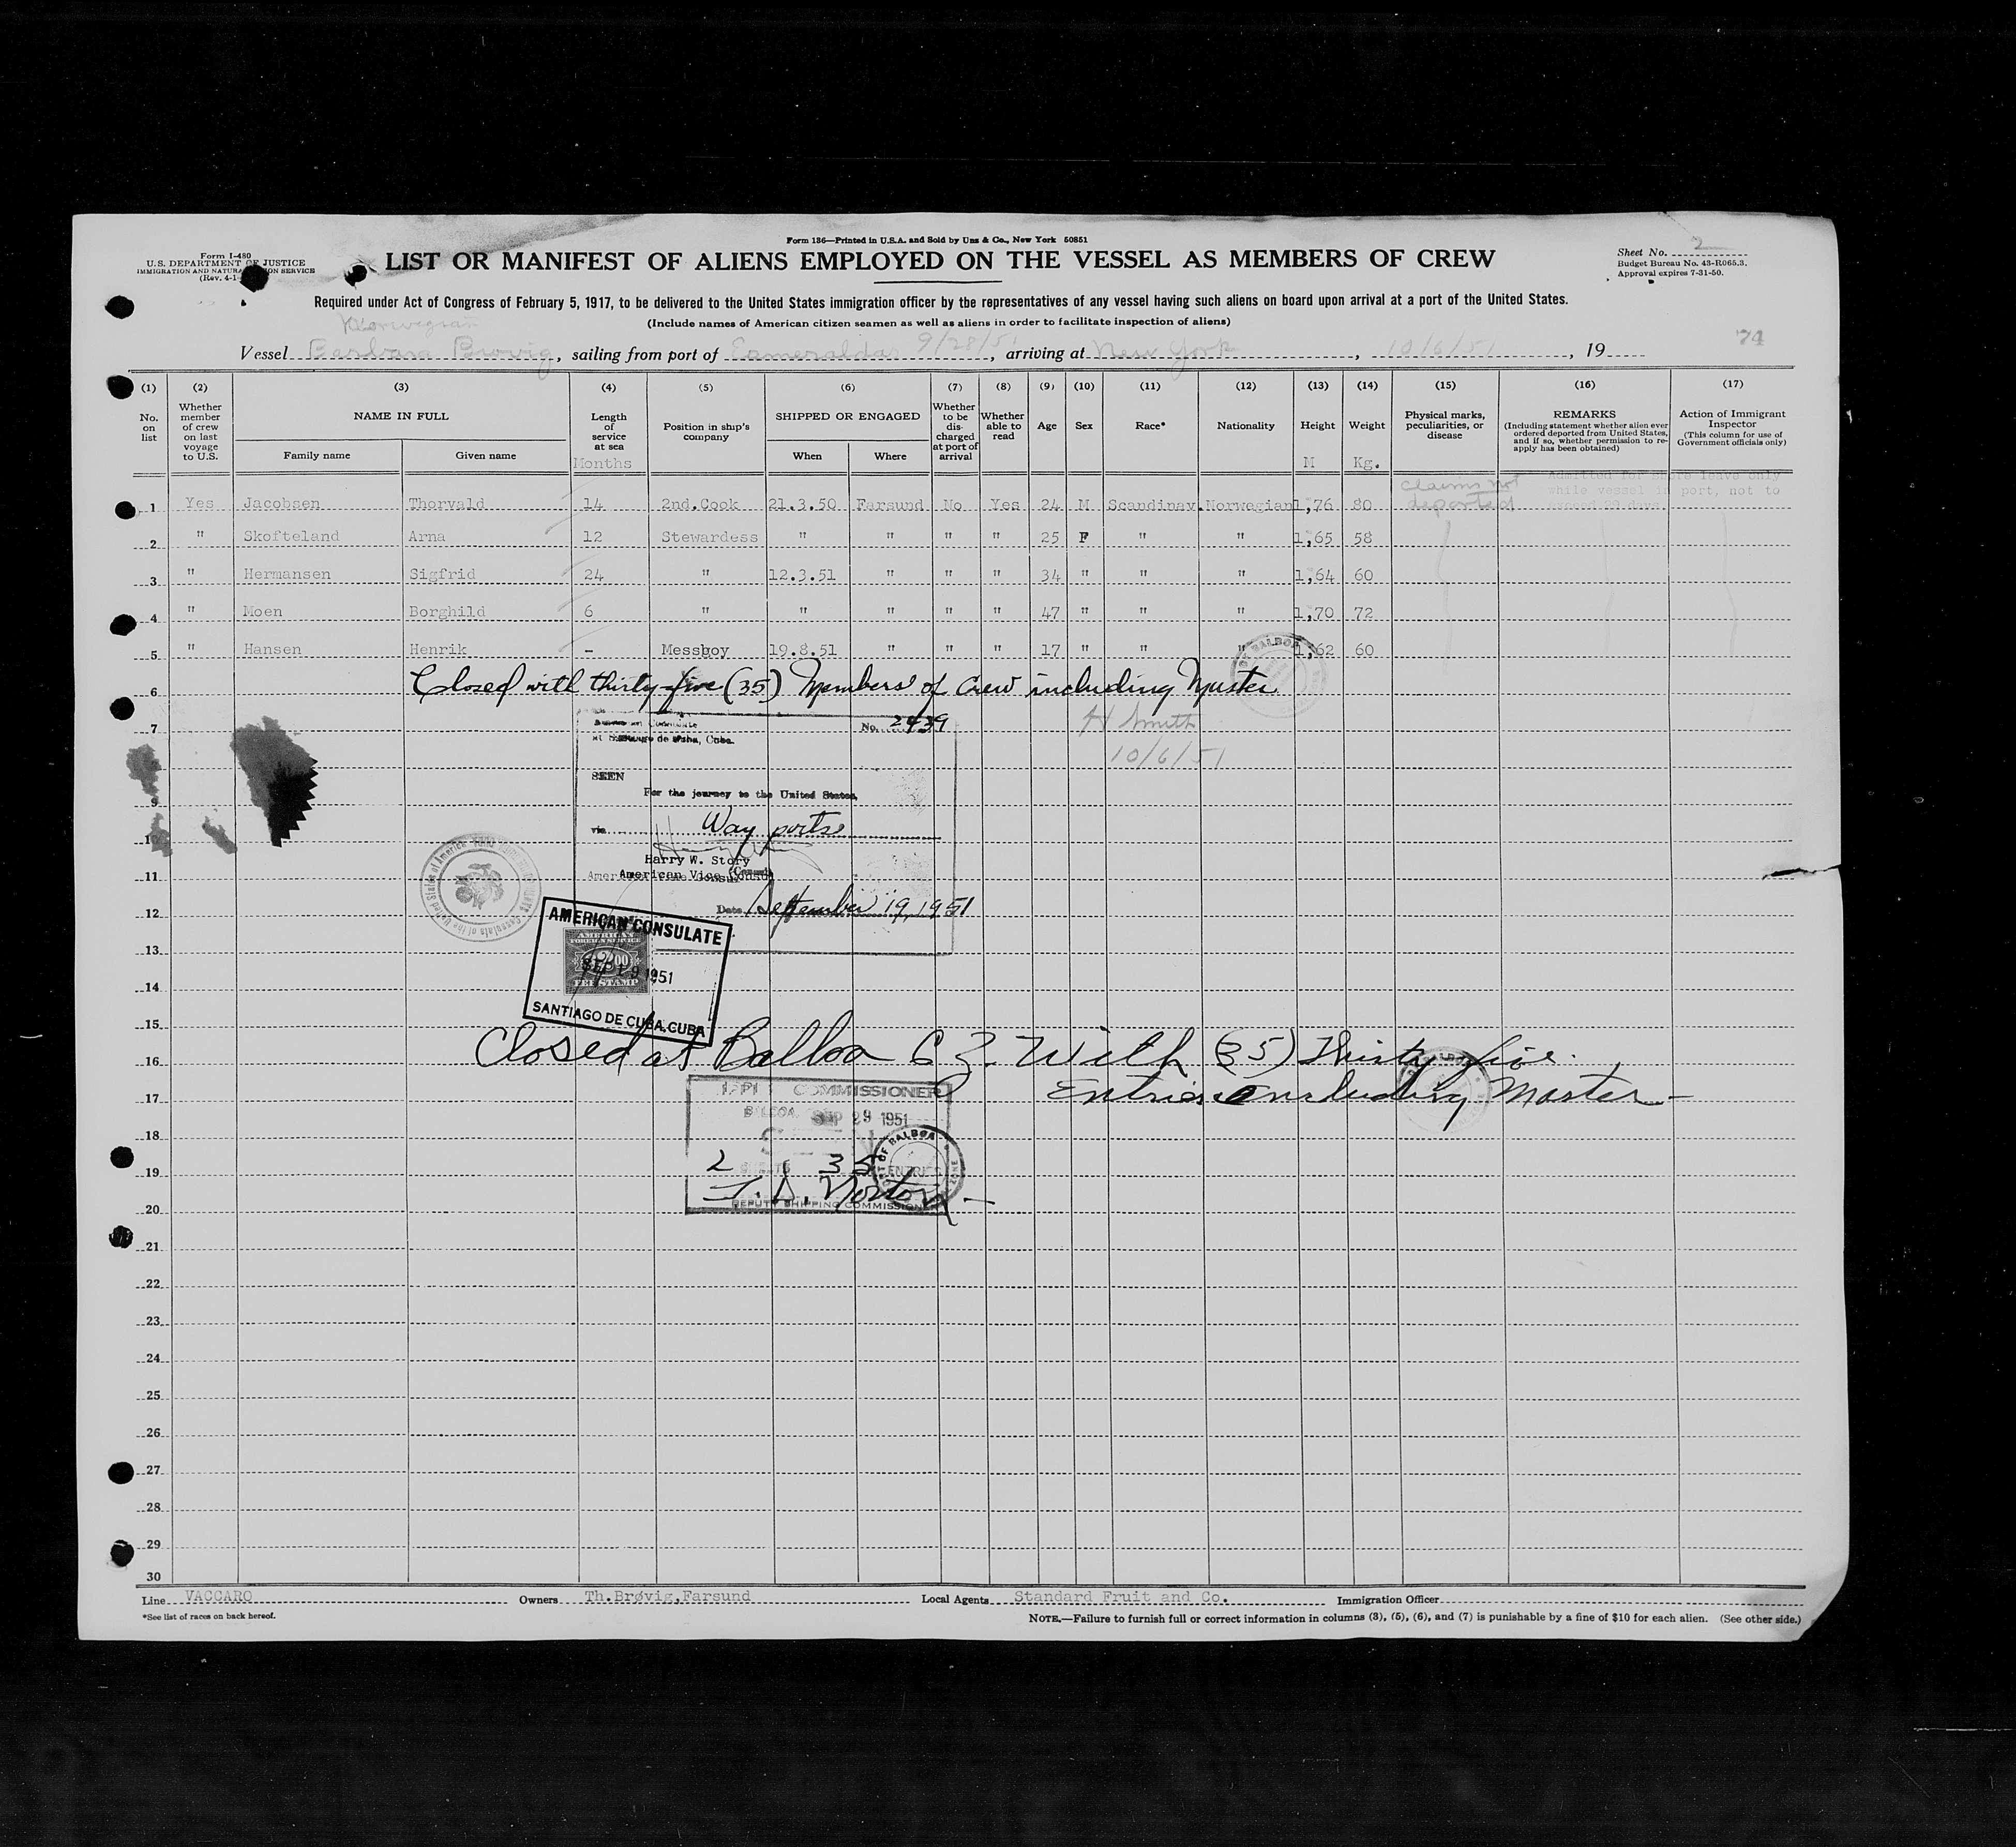 Form 136—Printed in U.S.A. and Sold by Unz & Co., New York 50851
Form I-480
U.S. DEPARTMENT OF JUSTICE
IMMIGRATION AND NATURALIZATION SERVICE
(Rev. 4-1-
LIST OR MANIFEST OF ALIENS EMPLOYED ON THE VESSEL AS MEMBERS OF CREW
Sheet No. 2
Budget Bureau No. 43-R065.3.
Approval expires 7-31-50.
Required under Act of Congress of February 5, 1917, to be delivered to the United States immigration officer by the representatives of any vessel having such aliens on board upon arrival at a port of the United States.
Norwegian
(Include names of American citizen seamen as well as aliens in order to facilitate inspection of aliens)
74
Vessel Barbara Brovig, sailing from port of Esmeraldas 9/28/51, arriving at New York, 10/6/51, 19
(1) (2) (3) (4) (5) (6) (7) (8) (9) (10) (11) (12) (13) (14) (15) (16) (17)
No. on list
Whether member of crew on last voyage to U.S.
NAME IN FULL
Family name Given name
Length of service at sea
Months
Position in ship's company
SHIPPED OR ENGAGED
When Where
Whether to be discharged at port of arrival
Whether able to read
Age
Sex
Race*
Nationality
Height
M
Weight
Kg.
Physical marks, peculiarities, or disease
REMARKS
(Including statement whether alien ever ordered deported from United States, and if so, whether permission to reapply has been obtained)
Action of Immigrant Inspector
(This column for use of Government officials only)
claims not deported
Admitted for shore leave only
while vessel in port, not to
exceed 29 days
1 Yes Jacobsen Thorvald 14 2nd.Cook 21.3.50 Farsund No Yes 24 M Scandinav. Norwegian 1,76 80
2 " Skofteland Arna 12 Stewardess " " " " 25 F " " 1,65 58
3 " Hermansen Sigfrid 24 " 12.3.51 " " " 34 " " " 1,64 60
4 " Moen Borghild 6 " " " " " 47 " " " 1,70 72
5 " Hansen Henrik - Messboy 19.8.51 " " " 17 " " " 1,62 60
6 Closed with thirty-five (35) Members of Crew including Master
7
American Consulate
at Santiago de Cuba, Cuba.
No. 2439
H Smith
10/6/51
SEEN
For the journey to the United States,
9
via Way ports
10
Harry W. Story
American Vice Consul
11
Date September 19, 1951
12
AMERICAN CONSULATE
AMERICAN
FOREIGN SERVICE
$2.00
FEE STAMP
SEP 19 1951
SANTIAGO DE CUBA, CUBA
13
14
15
Closed at Balboa C Z. With (35) Thirty five
16
Entries including Master—
17
SHIPPING COMMISSIONER
BALBOA
SEP 29 1951
18
2 SHEETS 35 ENTRIES
OF BALBOA
19
DEPUTY SHIPPING COMMISSIONER
20
21
22
23
24
25
26
27
28
29
30
Line VACCARO Owners Th.Brøvig,Farsund Local Agents Standard Fruit and Co. Immigration Officer
*See list of races on back hereof.
NOTE.—Failure to furnish full or correct information in columns (3), (5), (6), and (7) is punishable by a fine of $10 for each alien. (See other side.)